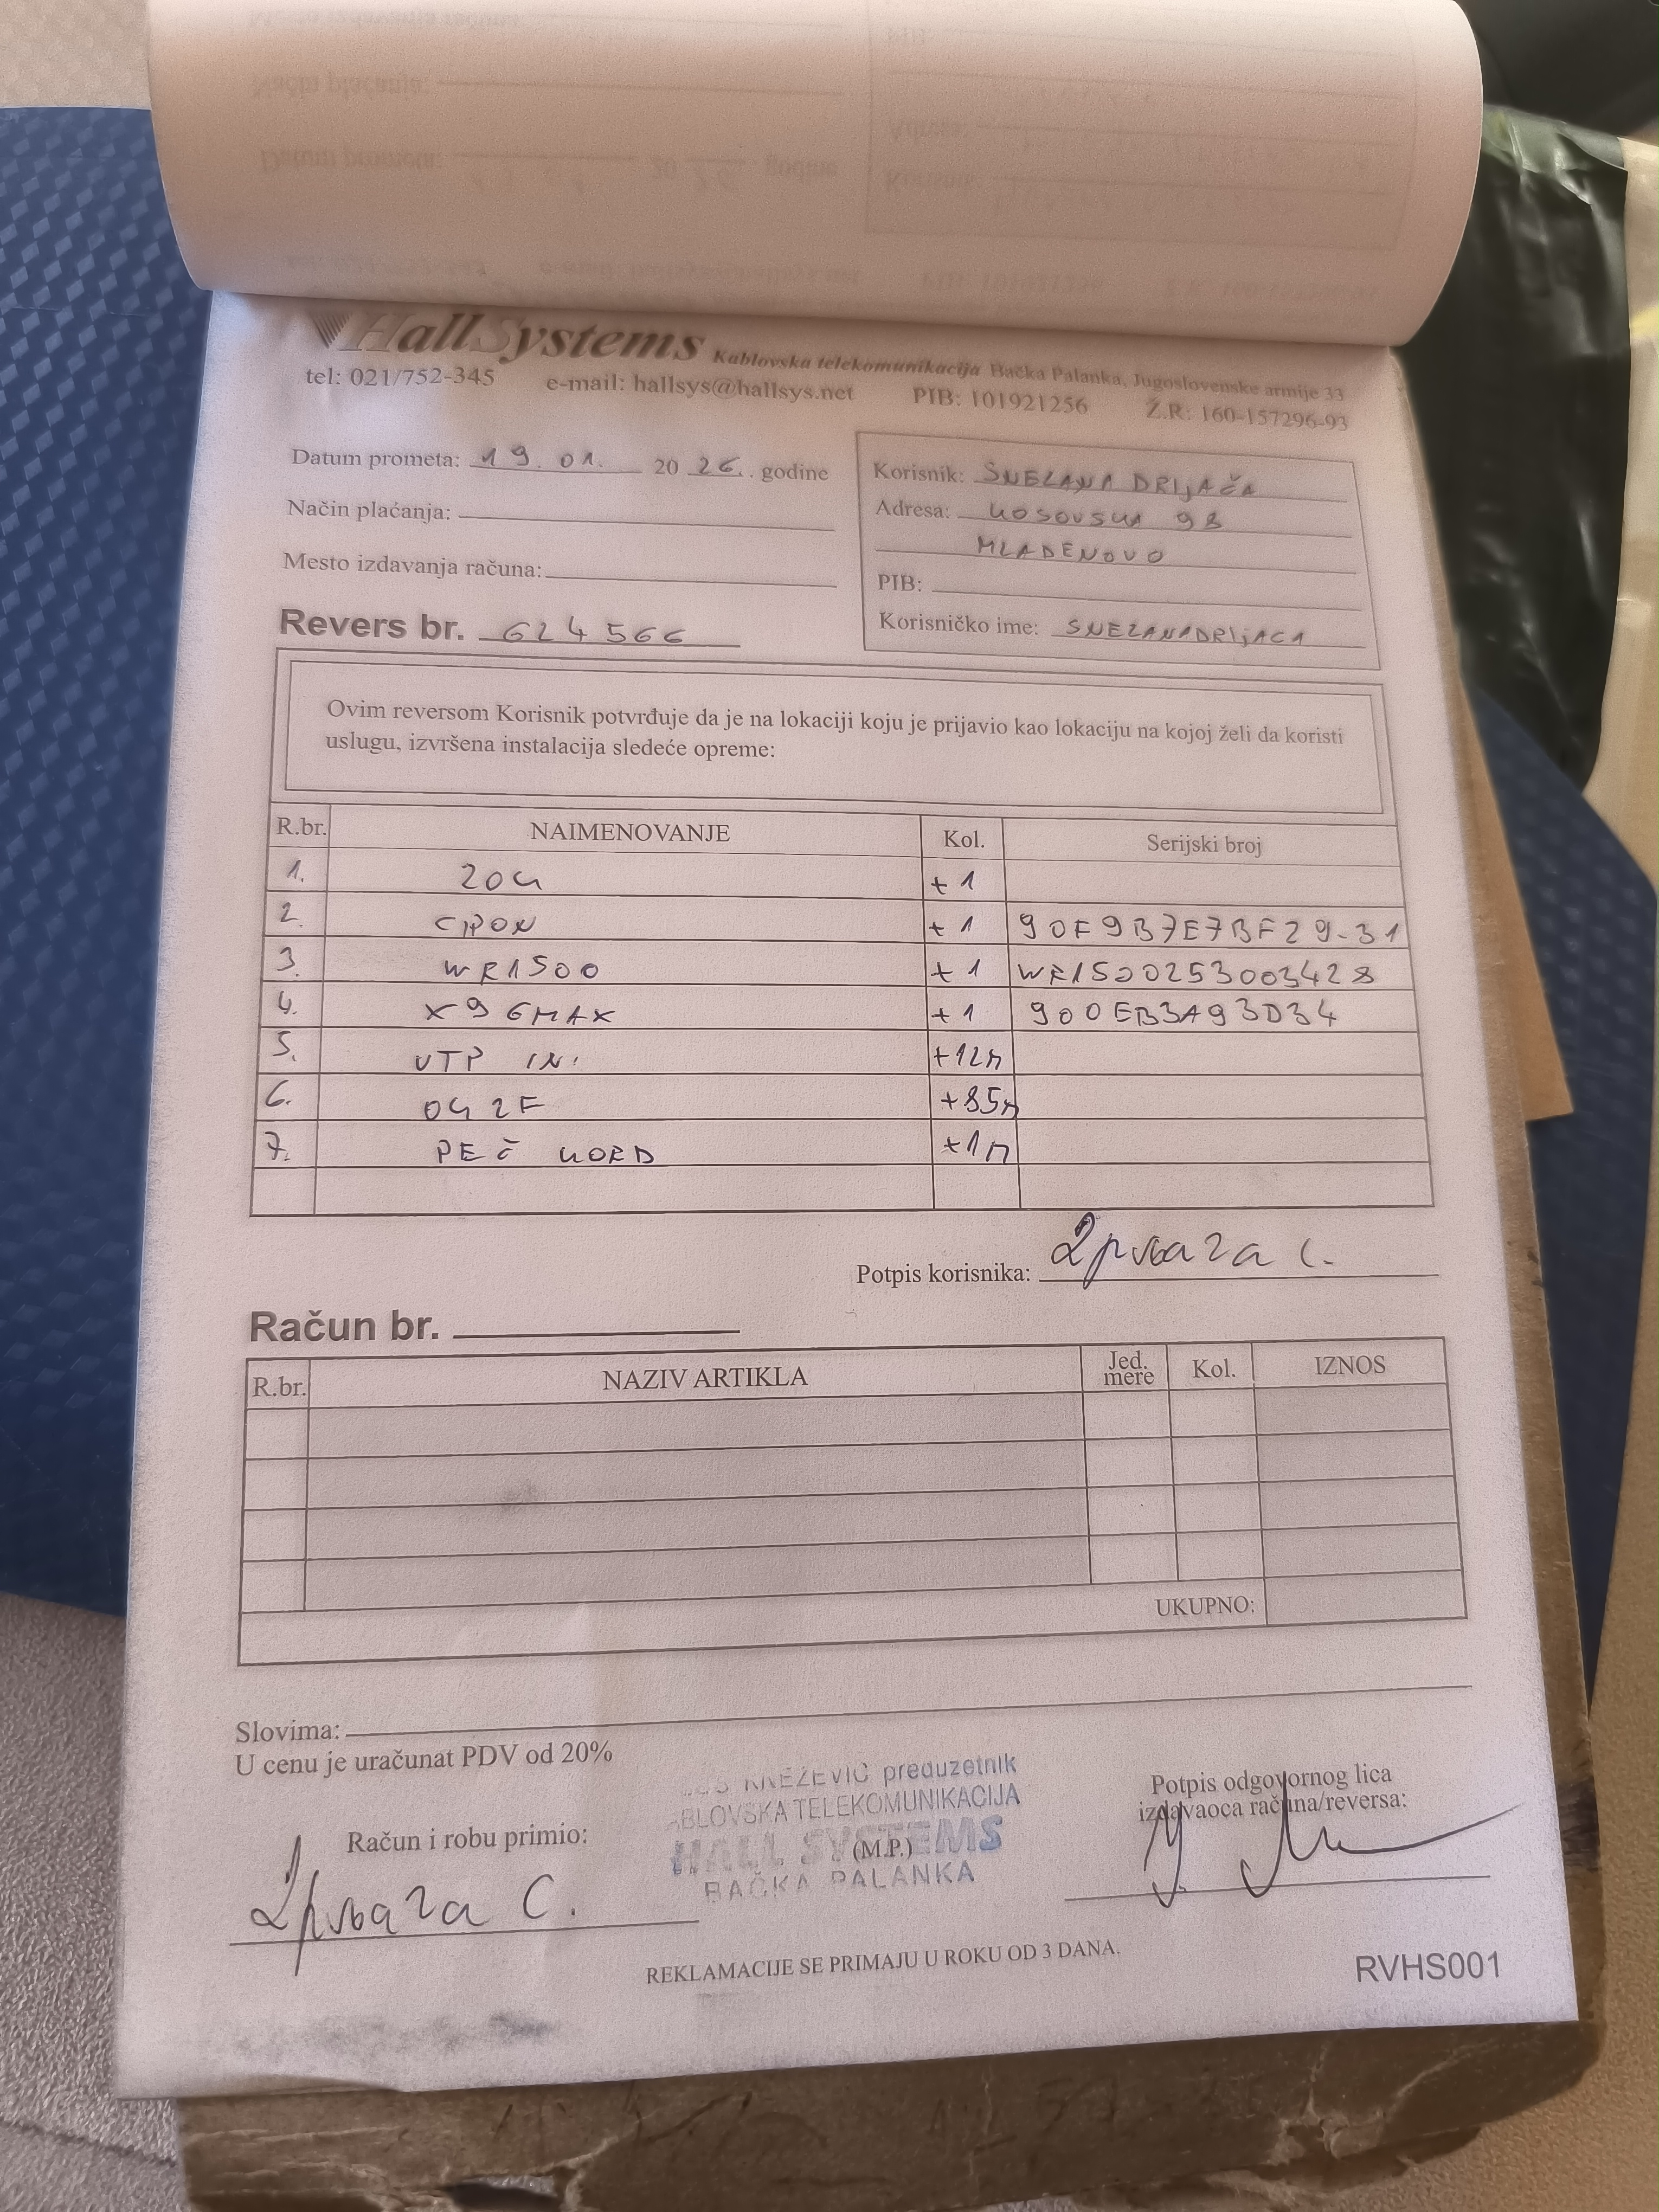 HallSystems Kablovska telekomunikacija Bačka Palanka, Jugoslovenske armije 33
tel: 021/752-345 e-mail: hallsys@hallsys.net PIB: 101921256 Ž.R: 160-157296-93
Datum prometa: 19. 01. 20 26. godine
Način plaćanja:
Mesto izdavanja računa:
Revers br. 624566
Korisnik: SNEZANA DRIJAČA
Adresa: KOSOVSKA 98
MLADENOVO
PIB:
Korisničko ime: SNEZANADRIJACA
Ovim reversom Korisnik potvrđuje da je na lokaciji koju je prijavio kao lokaciju na kojoj želi da koristi
uslugu, izvršena instalacija sledeće opreme:
R.br. NAIMENOVANJE Kol. Serijski broj
1. ZOK +1
2. CPON +1 90F9B7E7BF29-31
3. WR1500 +1 WR1500253003428
4. X96MAX +1 900EB3A93D34
5. UTP IN. +12M
6. OK 2F +85M
7. PEČ KORD +1M
Potpis korisnika: Дрљача С.
Račun br.
R.br. NAZIV ARTIKLA Jed. mere Kol. IZNOS
UKUPNO:
Slovima:
U cenu je uračunat PDV od 20%
KNEŽEVIĆ preduzetnik
TELEKOMUNIKACIJA
HALL SYSTEMS
(M.P.)
BAČKA PALANKA
Potpis odgovornog lica
izdavaoca računa/reversa:
Račun i robu primio:
Дрљача С.
REKLAMACIJE SE PRIMAJU U ROKU OD 3 DANA.
RVHS001